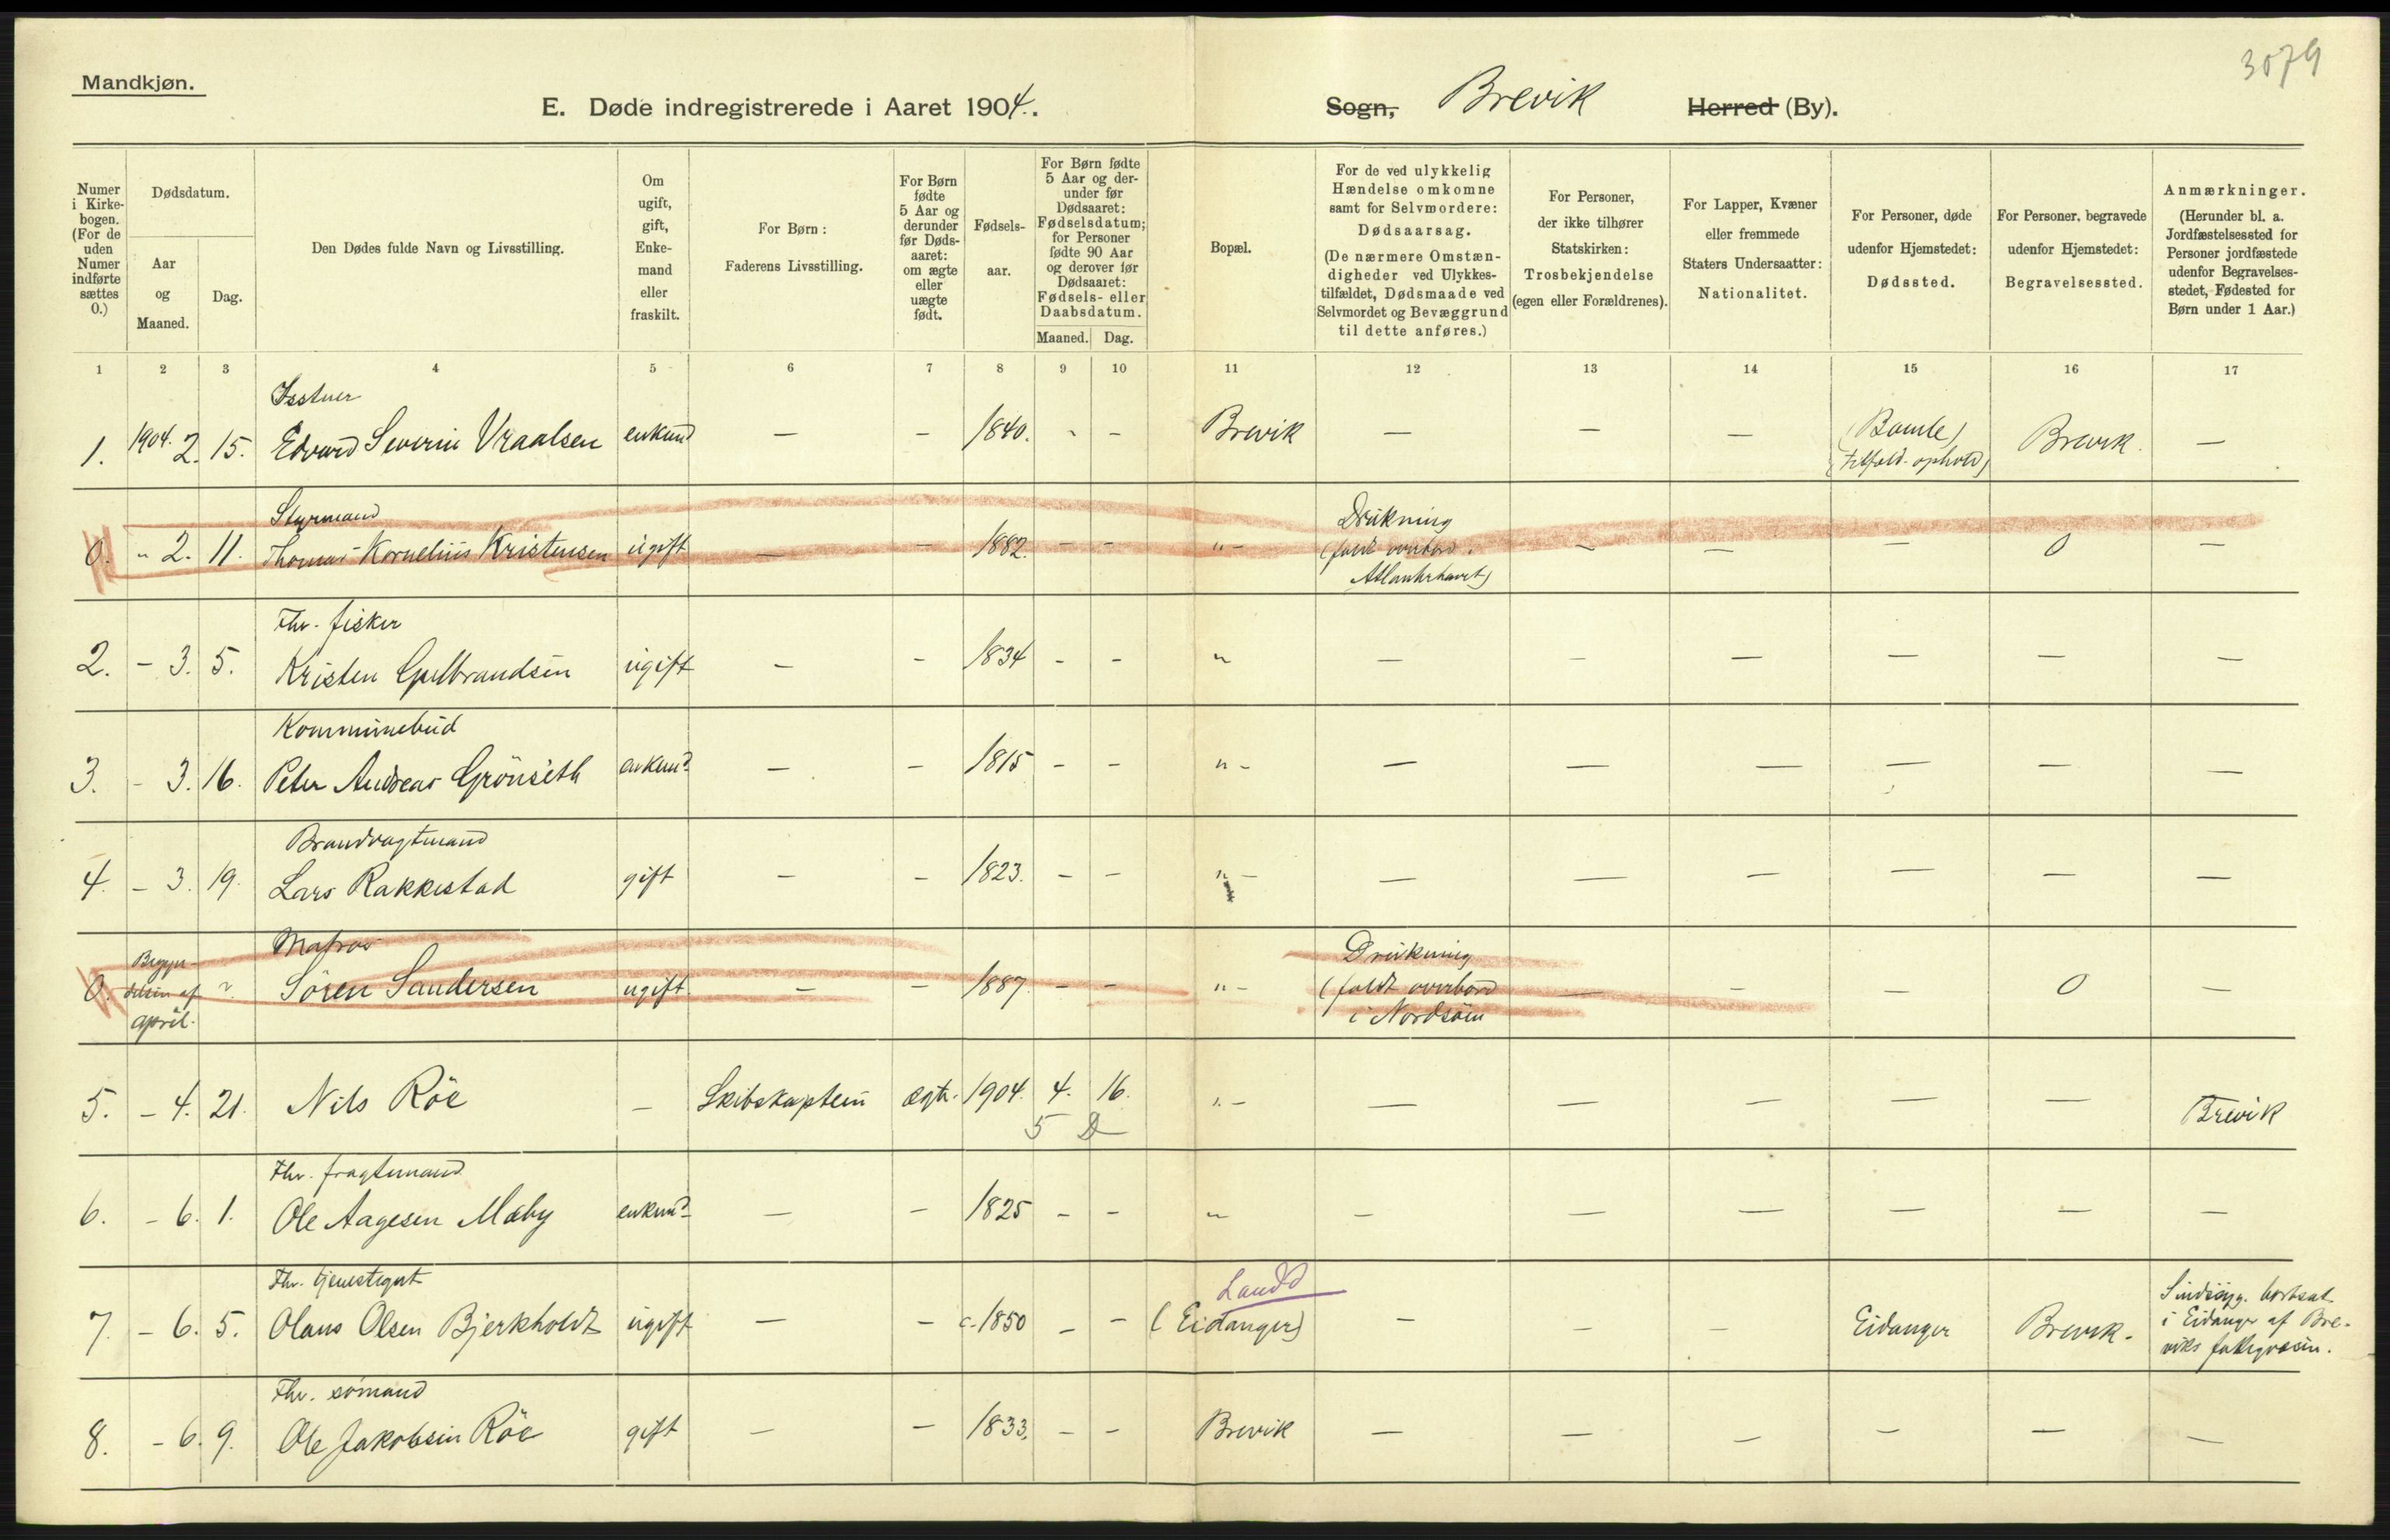 3079
Mandkjøn.
E. Døde indregistrerede i Aaret 1904.
Sogn, Brevik Herred (By).
Numer i Kirkebogen. (For de uden Numer indførte sættes 0.)
Dødsdatum.
Aar og Maaned.
Dag.
Den Dødes fulde Navn og Livsstilling.
Om ugift, gift, Enkemand eller fraskilt.
For Børn: Faderens Livsstilling.
For Børn fødte 5 Aar og derunder før Dødsaaret: om ægte eller uægte født.
Fødselsaar.
For Børn fødte 5 Aar og derunder før Dødsaaret: Fødselsdatum; for Personer fødte 90 Aar og derover før Dødsaaret: Fødsels- eller Daabsdatum.
Maaned. Dag.
Bopæl.
For de ved ulykkelig Hændelse omkomne samt for Selvmordere: Dødsaarsag. (De nærmere Omstændigheder ved Ulykkestilfældet, Dødsmaade ved Selvmordet og Bevæggrund til dette anføres.)
For Personer, der ikke tilhører Statskirken: Trosbekjendelse (egen eller Forældrenes).
For Lapper, Kvæner eller fremmede Staters Undersaatter: Nationalitet.
For Personer, døde udenfor Hjemstedet: Dødssted.
For Personer, begravede udenfor Hjemstedet: Begravelsessted.
Anmærkninger. (Herunder bl. a. Jordfæstelsessted for Personer jordfæstede udenfor Begravelsesstedet, Fødested for Børn under 1 Aar.)
1 2 3 4 5 6 7 8 9 10 11 12 13 14 15 16 17
1. 1904. 2. 15. Edvard Severin Vraalsen enkemd — — 1840. - - Brevik — — — (Bamle) Brevik. —
(tilfæld. ophold)
Styrmand
0. " 2. 11. Thomas Kornelius Kristensen ugift — — 1882. - - " - Drukning — — — 0 —
(faldt overbord.
Atlanterhavet)
Fhv. fisker
2. - 3. 5. Kristen Gulbrandsen ugift — - 1834 - - " — — — — — —
Kommunebud
3. - 3. 16. Peter Andreas Grönseth enkemd. — — 1815 - - " - — — — — — —
Brandvagtmand
4. - 3. 19. Lars Rakkestad gift — - 1823. - - " - — — — — — —
Matros
0. Begyndelsen af april. ? Sören Sandersen ugift — — 1887. - - " - Drukning — - — 0 —
(faldt overbord
i Nordsöen
5. - 4. 21. Nils Röe — Skibskaptein ægte. 1904. 4. 16. " - — — — — — Brevik
5 D
Fhv. fragtemand
6. - 6. 1. Ole Aagesen Mæby enkemd. — - 1825 - - " — — — — — —
Fhv. tjenestegut
7. - 6. 5. Olaus Olsen Bjerkholdt ugift — - c. 1850 - - (Eidanger) - — — Eidanger Brevik. Sindssyg. bortsat
i Eidanger af Bre-
viks fattigvæsen.
Fhv. sömand
8. - 6. 9. Ole Jakobsen Röe gift — - 1833. - - Brevik — — — - — —